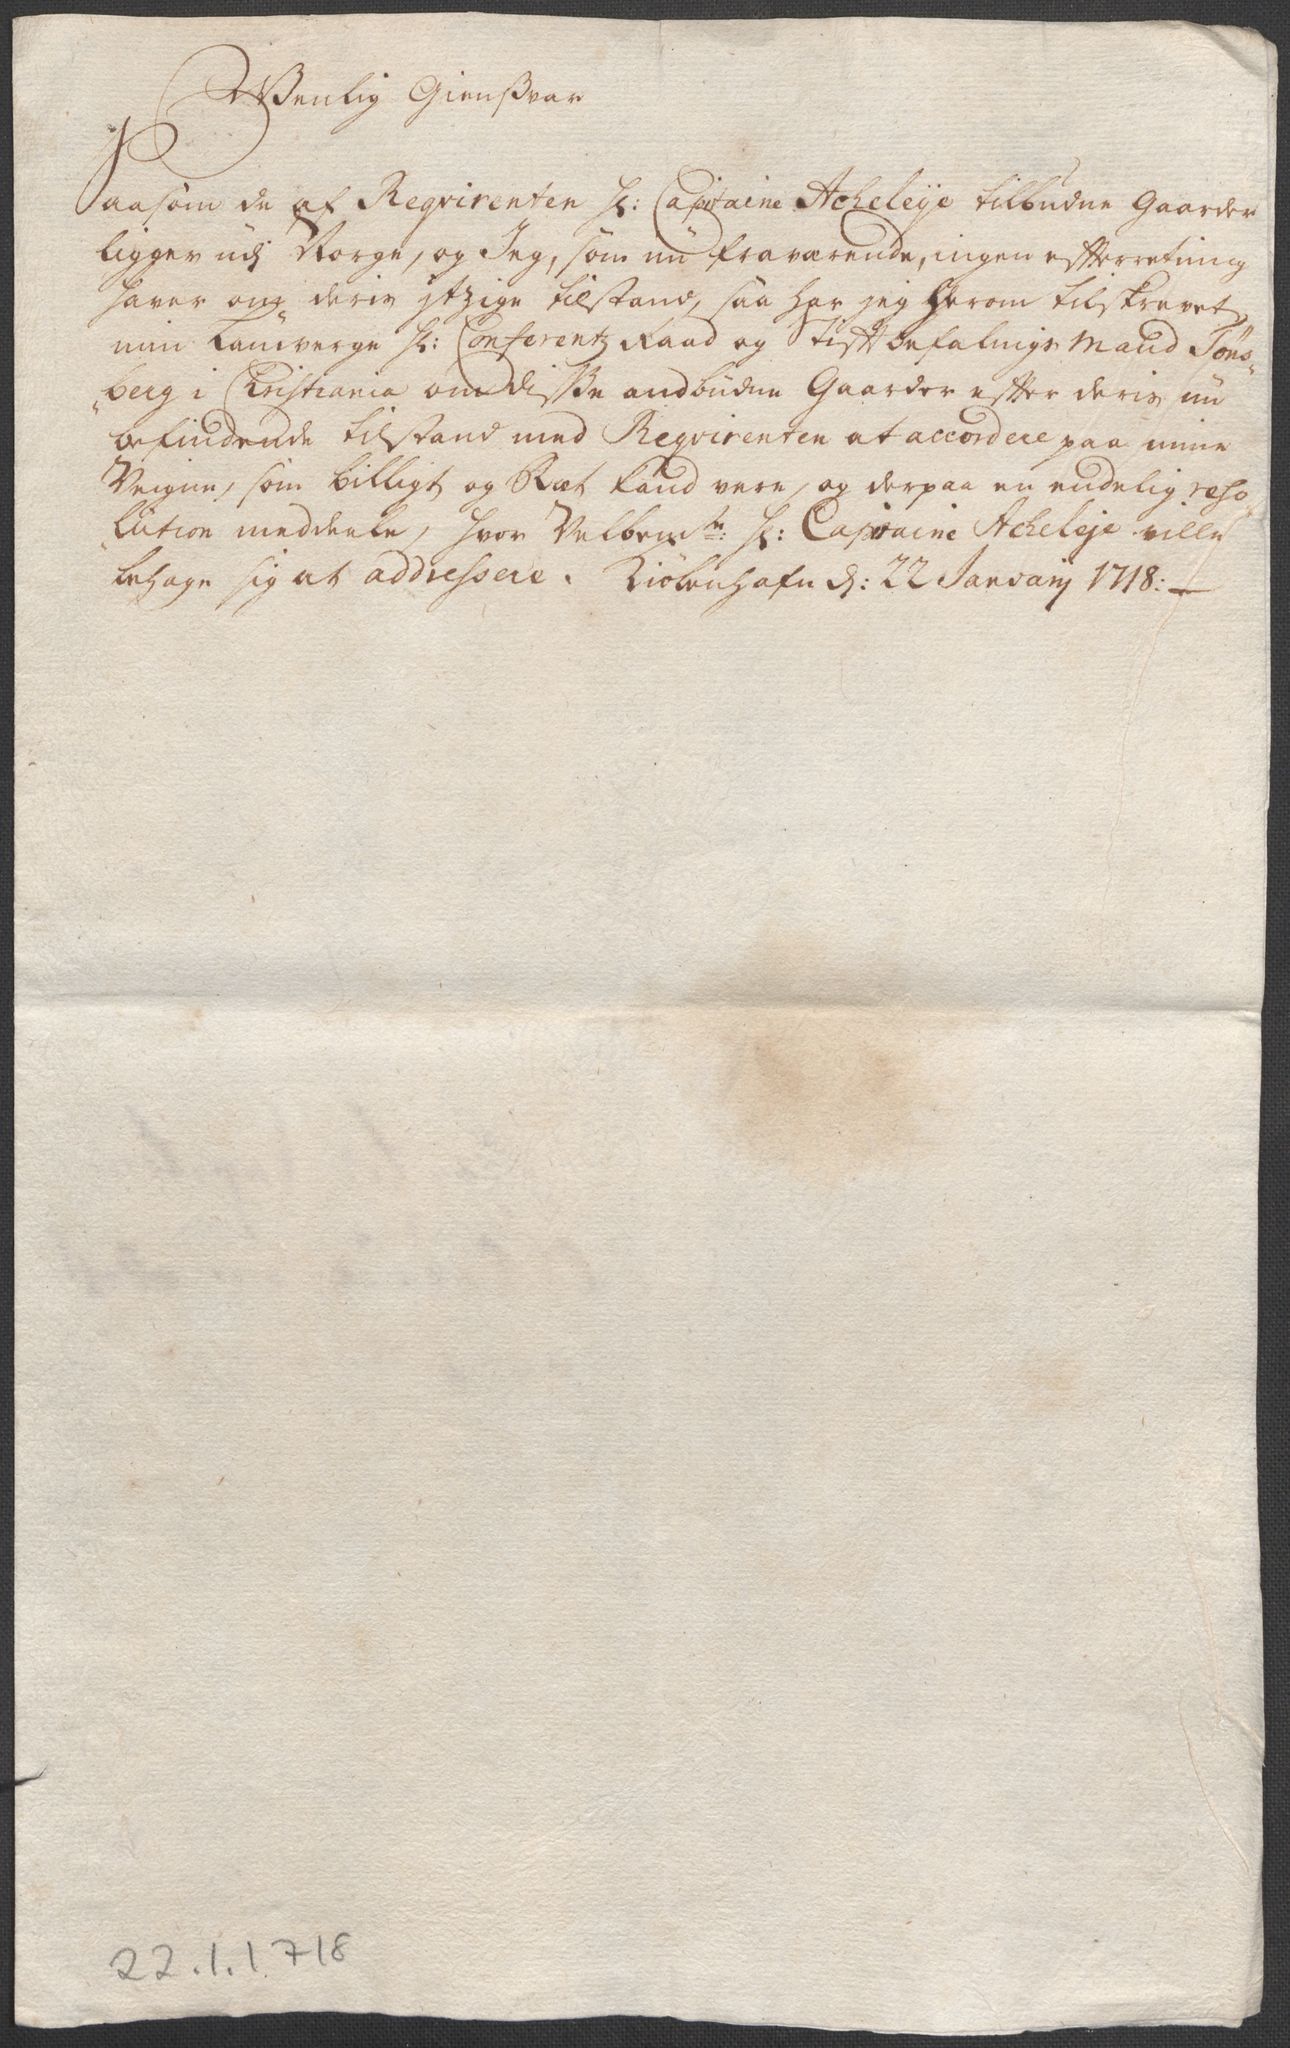 Wenlig Giensvar
Saasom de af Reqvirenten Hr: Capitaine Acheleije tilbudne Gaarder
ligger udj Norge, og Jeg, som nu fraværende, ingen efterretning
haver om deris itzige tilstand, saa har jeg herom tilskrevet
min Laugverge Hr: Conferentz Raad og Stiftbefalings Mand Töns-
berg i Christiania om disse andbudne Gaarder efter deris nu
befindende tilstand med Reqvirenten at accordere paa mine
Veigne, som billigt og Ræt kand vere, og derpaa en endelig reso
lution meddeele, hvor Velbemte: Hr: Capitaine Acheleje ville
behage sig at addressere. Kiöbenhafn d: 22 Januarij 1718:
22.1.1718